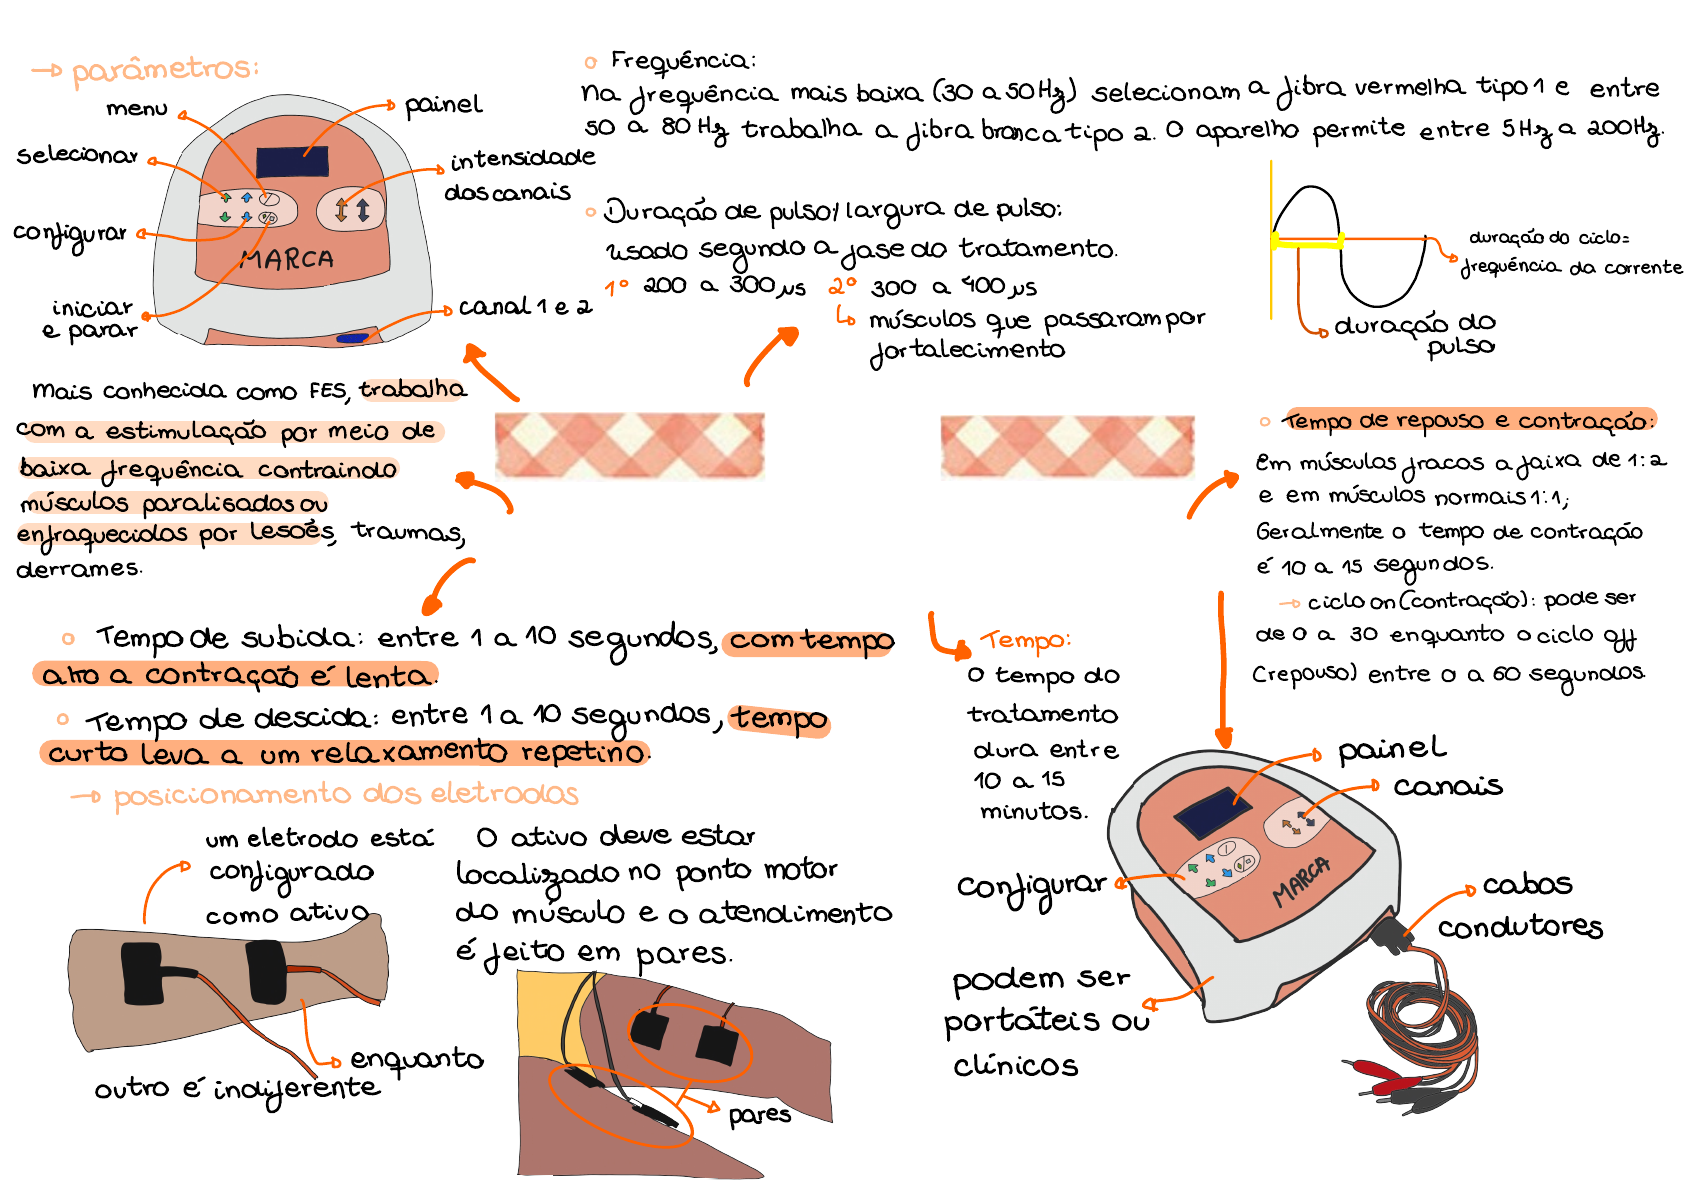 → parâmetros:
menu
painel
selecionar
intensidade
dos canais
configurar
MARCA
iniciar
e parar
canal 1 e 2
Frequência:
Na frequência mais baixa (30 a 50Hz) selecionam a fibra vermelha tipo 1 e entre
50 a 80 Hz trabalha a fibra branca tipo 2. O aparelho permite entre 5Hz a 200Hz.
Duração de pulso/largura de pulso:
usado segundo a fase do tratamento.
1° 200 a 300 µs 2° 300 a 400 µs
músculos que passaram por
fortalecimento
duração do ciclo=
frequência da corrente
duração do
pulso
Mais conhecida como FES, trabalha
com a estimulação por meio de
baixa frequência contraindo
músculos paralisados ou
enfraquecidos por lesões, traumas,
derrames.
Tempo de repouso e contração:
Em músculos fracos a faixa de 1:2
e em músculos normais 1:1;
Geralmente o tempo de contração
é 10 a 15 segundos.
→ ciclo on (contração): pode ser
de 0 a 30 enquanto o ciclo off
(repouso) entre 0 a 60 segundos
Tempo de subida: entre 1 a 10 segundos, com tempo
alto a contração é lenta.
Tempo de descida: entre 1 a 10 segundos, tempo
curto leva a um relaxamento repetino.
Tempo:
O tempo do
tratamento
dura entre
10 a 15
minutos.
→ posicionamento dos eletrodos
um eletrodo está
configurado
como ativo
enquanto
outro é indiferente
O ativo deve estar
localizado no ponto motor
do músculo e o atendimento
é feito em pares.
pares
painel
canais
configurar
MARCA
cabos
condutores
podem ser
portáteis ou
clínicos